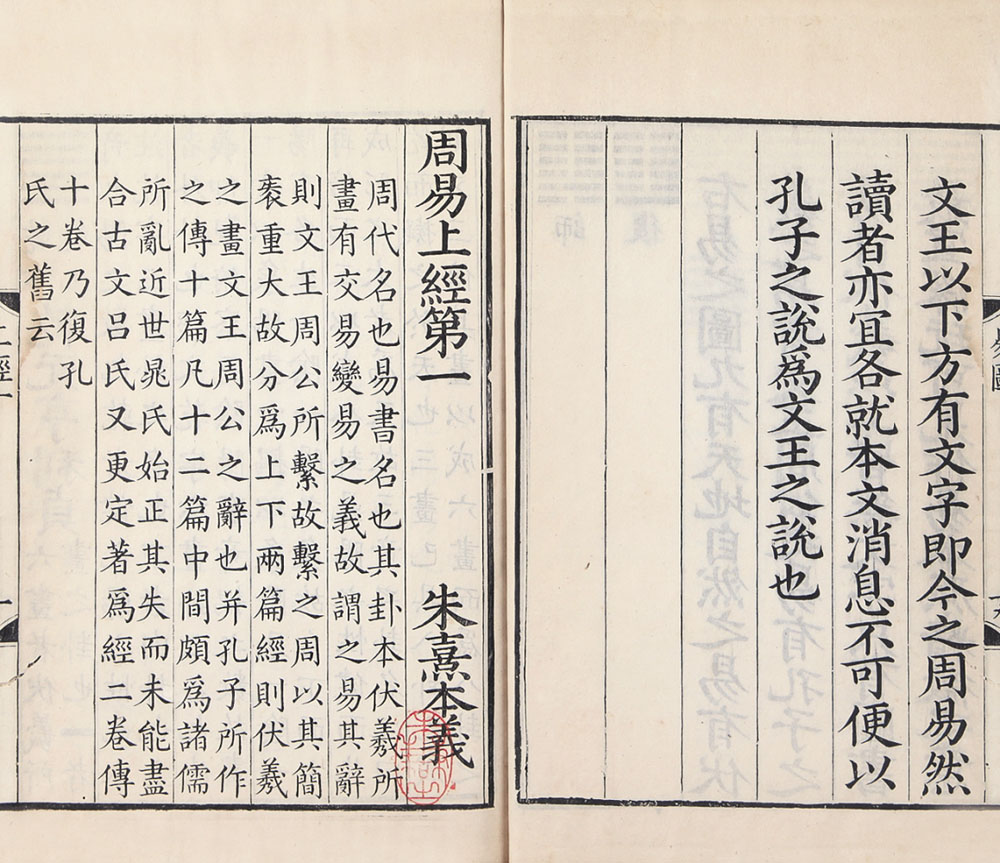 文王以下方有文字即今之周易然
讀者亦宜各就本文消息不可便以
孔子之說爲文王之說也
周易上經第一
朱熹本義
周代名也易書名也其卦本伏羲所
畫有交易變易之義故謂之易其辭
則文王周公所繫故繫之周以其簡
袠重大故分爲上下兩篇經則伏羲
之畫文王周公之辭也并孔子所作
之傳十篇凡十二篇中間頗爲諸儒
所亂近世晁氏始正其失而未能盡
合古文吕氏又更定著爲經二卷傳
十卷乃復孔
氏之舊云